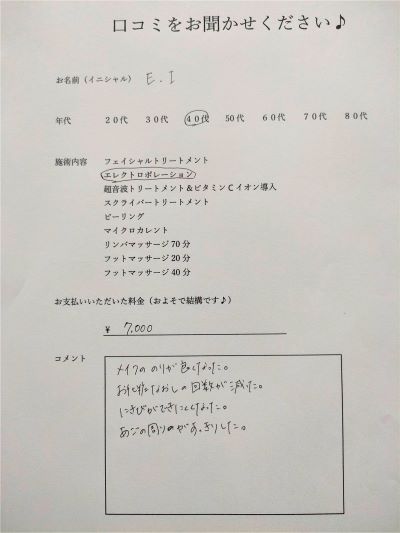 口コミをお聞かせください♪
お名前（イニシャル） E.I
年代 20代 30代 40代 50代 60代 70代 80代
施術内容 フェイシャルトリートメント
エレクトロポレーション
超音波トリートメント＆ビタミンCイオン導入
スクライバートリートメント
ピーリング
マイクロカレント
リンパマッサージ70分
フットマッサージ20分
フットマッサージ40分
お支払いいただいた料金（およそで結構です♪）
¥ 7,000
コメント
メイクののりが良くなった。
お化粧なおしの回数が減った。
にきびができにくくなった。
あごの周りがすっきりした。